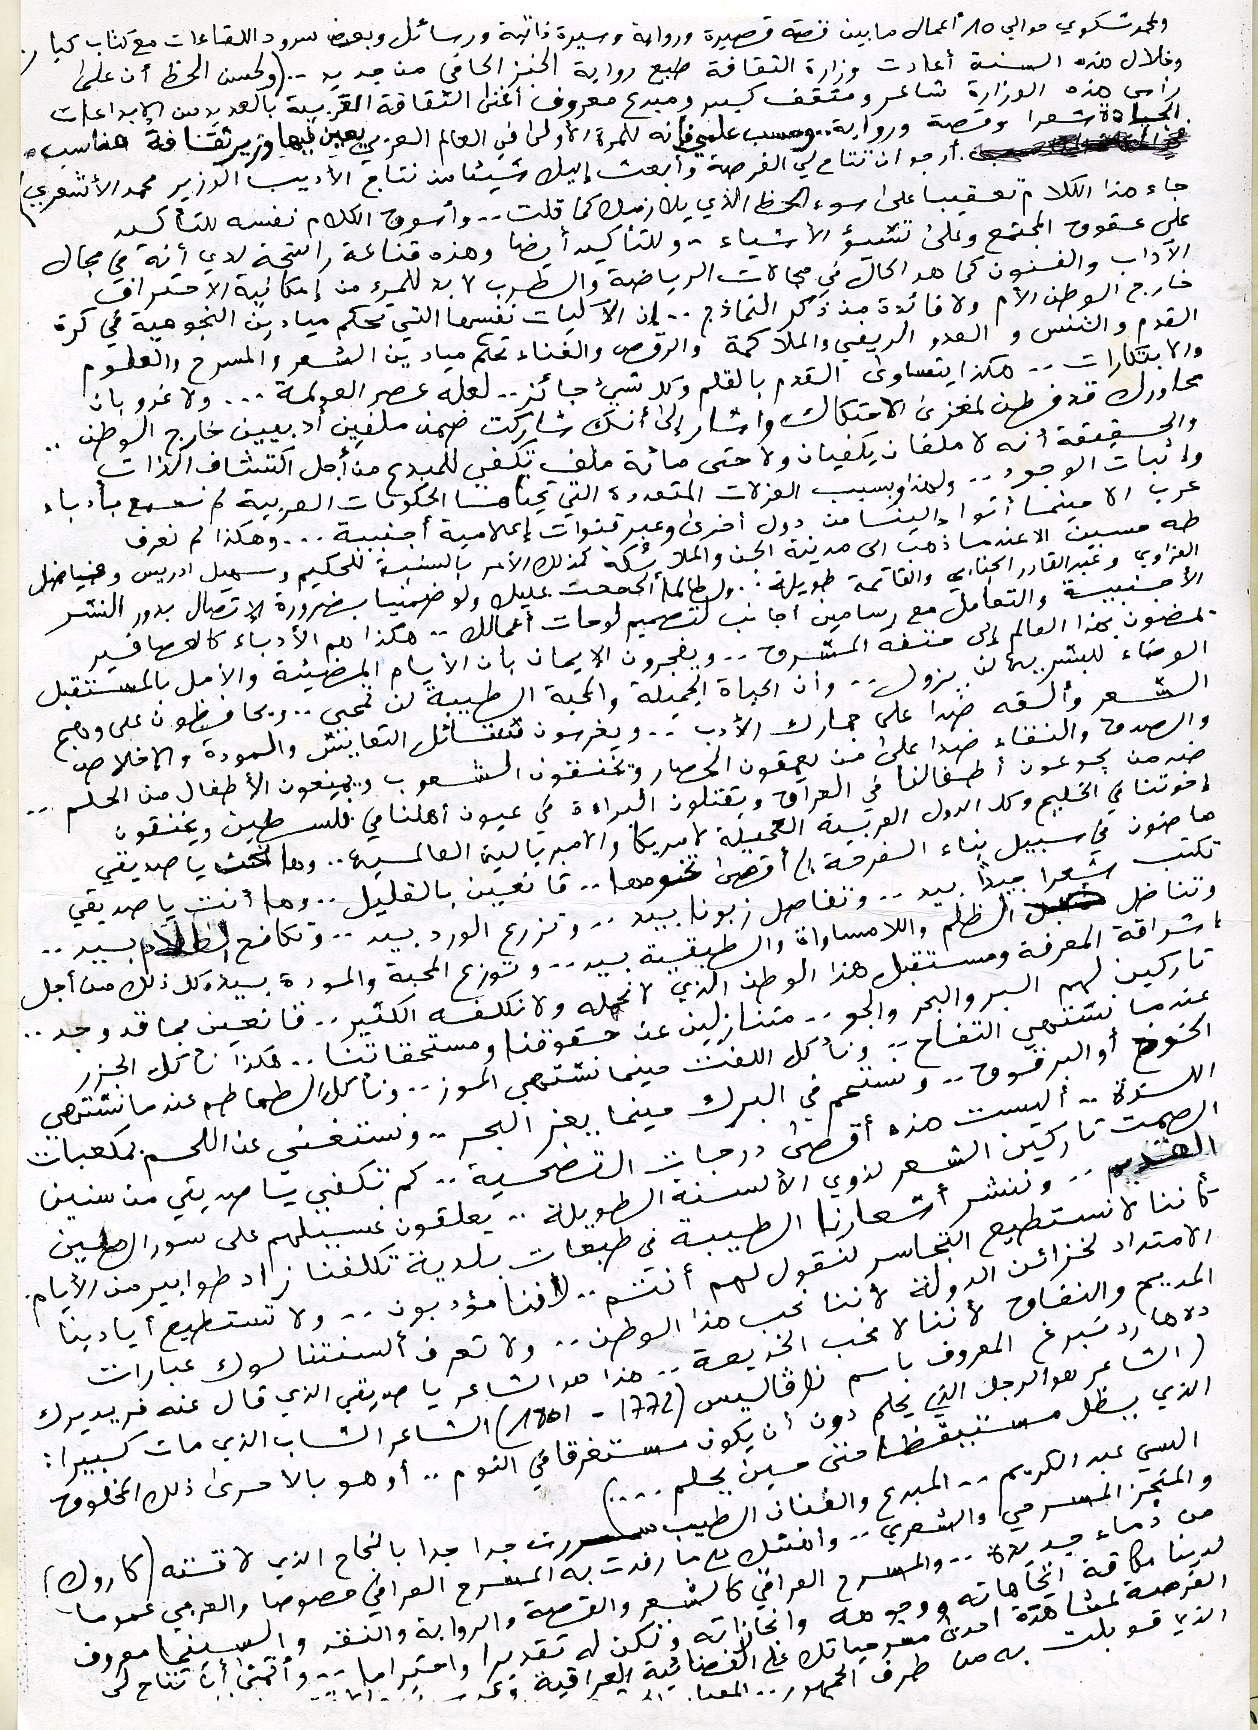 ولمحمد شكوي حوالي 15 أعمال ما بين قصة قصيرة ورواية وسيرة ذاتية ورسائل وبعض سرود اللقاءات مع كتاب كبار
وخلال هذه السنة أعادت وزارة الثقافة طبع رواية الخبز الحافي من جديد .. (ولحسن الحظ أن على
رأس هذه الوزارة شاعر ومثقف كبير ومبدع معروف أغنى الثقافة المغربية بالعديد من الإبداعات
الجيادة شعرا وقصة ورواية.. وحسب علمي فإنه للمرة الأولى في العالم العربي يعين فيها وزير ثقافة مناسب
أرجو ان تتاح لي الفرصة وأبعث إليك شيئا من نتاج الأديب الوزير محمد الأشعري)
جاء هذا الكلام تعقيبا على سوء الحظ الذي يلازمك كما قلت .. وأسوق الكلام نفسه للتأكيد
على عقوق المجتمع وعلى تشيؤ الأشياء .. وللتأكيد أيضا وهذه قناعة راسخة لدي أنه في مجال
الآداب والفنون كما هو الحال في مجالات الرياضة والطرب لا بد للمرء من إمكانية الاحتراف
خارج الوطن الأم ولا فائدة من ذكر النماذج .. إن الآليات نفسها التي تحكم ميادين النجومية في كرة
القدم والتنس و العدو الريفي والملاكمة والرقص والغناء تحكم ميادين الشعر والمسرح والعلوم
والابتكارات .. هكذا يتساوى القدم بالقلم وكل شيء جائز .. لعله عصر العولمة ... ولا غرو بان
محاورك قد فطن لمغزى الاحتكاك وأشار إلى أنك شاركت ضمن ملفين أدبيين خارج الوطن ..
والحقيقة أنه لا ملفان يكفيان ولا حتى مائة ملف تكفي للمبدع من أجل اكتشاف الذات
وإثبات الوجود .. ولهذا وبسبب العزلات المتعددة التي تحياها الحكومات العربية لم نسمع بأدباء
عرب إلا حينما أتوا إلينا من دول أخرى وعبر قنوات إعلامية أجنبية ... وهكذا لم نعرف
طه حسين إلا عندما ذهب الى مدينة الجن والملائكة كذلك الأمر بالنسبة للحكيم وسهيل ادريس وفاضل
العزاوي وعبد القادر الجنابي والقائمة طويلة .. ولطالما ألححت عليك ولو ضمنيا بضرورة الاتصال بدور النشر
الأجنبية والتعامل مع رسامين أجانب لتصميم لوحات أعمالك .. هكذا هم الأدباء كالعصافير
يمضون بهذا العالم إلى متنفه المشرق .. ويفجرون الإيمان بأن الأيام المضيئة والأمل بالمستقبل
الوضاء للبشرية لن يزول .. وأن الحياة الجميلة والمحبة الطيبة لن تمحى .. ويحافظون على وهج
الشعر وألقه ضدا على جمارك الأدب .. ويغرسون فسائل التعايش والمودة والاخلاص
والصدق والنقاء ضدا على من يعمقون الحصار ويخنقون الشعوب ويمنعون الأطفال من الحلم ..
ضد من يجوعون أطفالنا في العراق ويقتلون البراءة في عيون أهلنا في فلسطين ويخنقون
إخوتنا في الخليج وكل الدول العربية العميلة لأمريكا والامبريالية العالمية .. وها أنت يا صديقي
ماضون في سبيل بناء المعرفة إلى أقصى تخومها .. قانعين بالقليل .. وها أنت يا صديقي
تكتب شعرا جيدا بيد .. وتفاصل زبونا بيد .. وتزرع الورد بيد .. وتكافح الظلام بيد ..
وتناضل الظلم واللامساواة والطبقية بيد .. وتوزع المحبة والمودة بيد وكل ذلك من أجل
إشراقة المعرفة ومستقبل هذا الوطن الذي لا نحمله ولا نكلفه الكثير .. قانعين بما قد وجد ..
تاركين لهم البر والبحر والجو .. متنازلين عن حقوقنا ومستحقاتنا .. هكذا نأكل الجزر
عندما نشتهي التفاح .. ونأكل اللفت حينما نشتهي الموز .. ونأكل الطماطم عندما نشتهي
الخوخ أو البرقوق .. ونستحم في البرك حينما يعز البحر .. ونستغني عن اللحم بمكعبات
اللسزة .. أليست هذه أقصى درجات التضحية .. كم تكفي يا صديقي من سنين
الصمت تاركين الشعر لذوي الألسنة الطويلة .. يعلقون غسيلهم على سور الصين
العظيم .. وننشر أشعارنا الطيبة في طبعات بلدية تكلفنا زاد طوابير من الأيام.
كأننا لا نستطيع التجاسر لنقول لهم أنتم .. لأننا مؤدبون .. ولا تستطيع أيادينا
الامتداد لخزائن الدولة لأننا نحب هذا الوطن .. ولا تعرف ألسنتنا لوك عبارات
المديح والنفاق لأننا لا نحب الخديعة .. هذا هو الشاعر يا صديقي الذي قال عنه فريديرك
دوهاردنبرغ المعروف باسم نوفاليس (1772 - 1801) الشاعر الشاب الذي مات كبيرا :
(الشاعر هو الرجل الذي يحلم دون أن يكون مستغرقا في النوم .. أو هو بالأحرى ذلك المخلوق
الذي يظل مستيقظا حتى حين يحلم ....)
السي عبد الكريم .. المبدع والفنان الطيب سررت جدا جدا بالنجاح الذي لاقته (كاروك)
والمنجز المسرحي والشعري .. وأمثلك ما رفدت به المسرح العراقي خصوصا والعربي عموما
من دماء جديدة .. والمسرح العراقي كالشعر والقصة والرواية والنقد والسينما معروف
لدينا بكافة اتجاهاته ووجوهه وانجازاته ونكن له تقديرا واحتراما .. وأتمنى أن تتاح لي
الفرصة لمشاهدة احدى مسرحياتك على الفضائية العراقية
الذي قوبلت به من طرف الجمهور ..